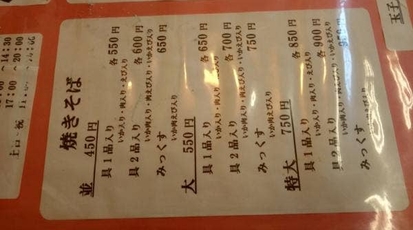 焼きそば
並 450円
具1品入り 各550円
いか入り・肉入り・えび入り
具2品入り 各600円
いか肉入り・肉えび入り・いかえび入り
みっくす 650円
いか肉えび入り
大 550円
具1品入り 各650円
いか入り・肉入り・えび入り
具2品入り 各700円
いか肉入り・肉えび入り・いかえび入り
みっくす 750円
いか肉えび入り
特大 750円
具1品入り 各850円
いか入り・肉入り・えび入り
具2品入り 各900円
いか肉入り・肉えび入り・いかえび入り
みっくす
いか肉えび入り
玉子
14:30
17:00 20:00
土日・祝